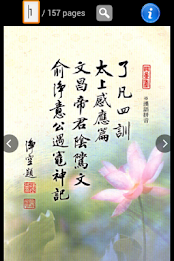 / 157 pages
了凡四訓
太上感應篇
文昌帝君陰騭文
俞淨意公遇竈神記
淨空題
※漢語拼音